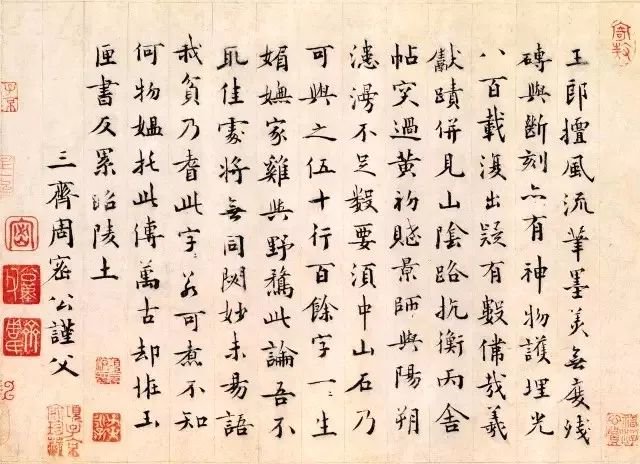 王郎擅風流筆墨美無度殘
磚與斷刻亦有神物護埋光
八百載復出疑有數偹哉羲
獻蹟併見山陰路抗衡兩舍
帖突過黄初賦景師與陽朔
漶漫不足數要須中山石乃
可與之伍十行百餘字一〻生
媚嫵家雞與野鶩此論吾不
取佳處將無同闕妙未易語
我貧乃耆此字若可煮不知
何物媪托此傳萬古却恠玉
匣書反累昭陵土
三齊周密公謹父